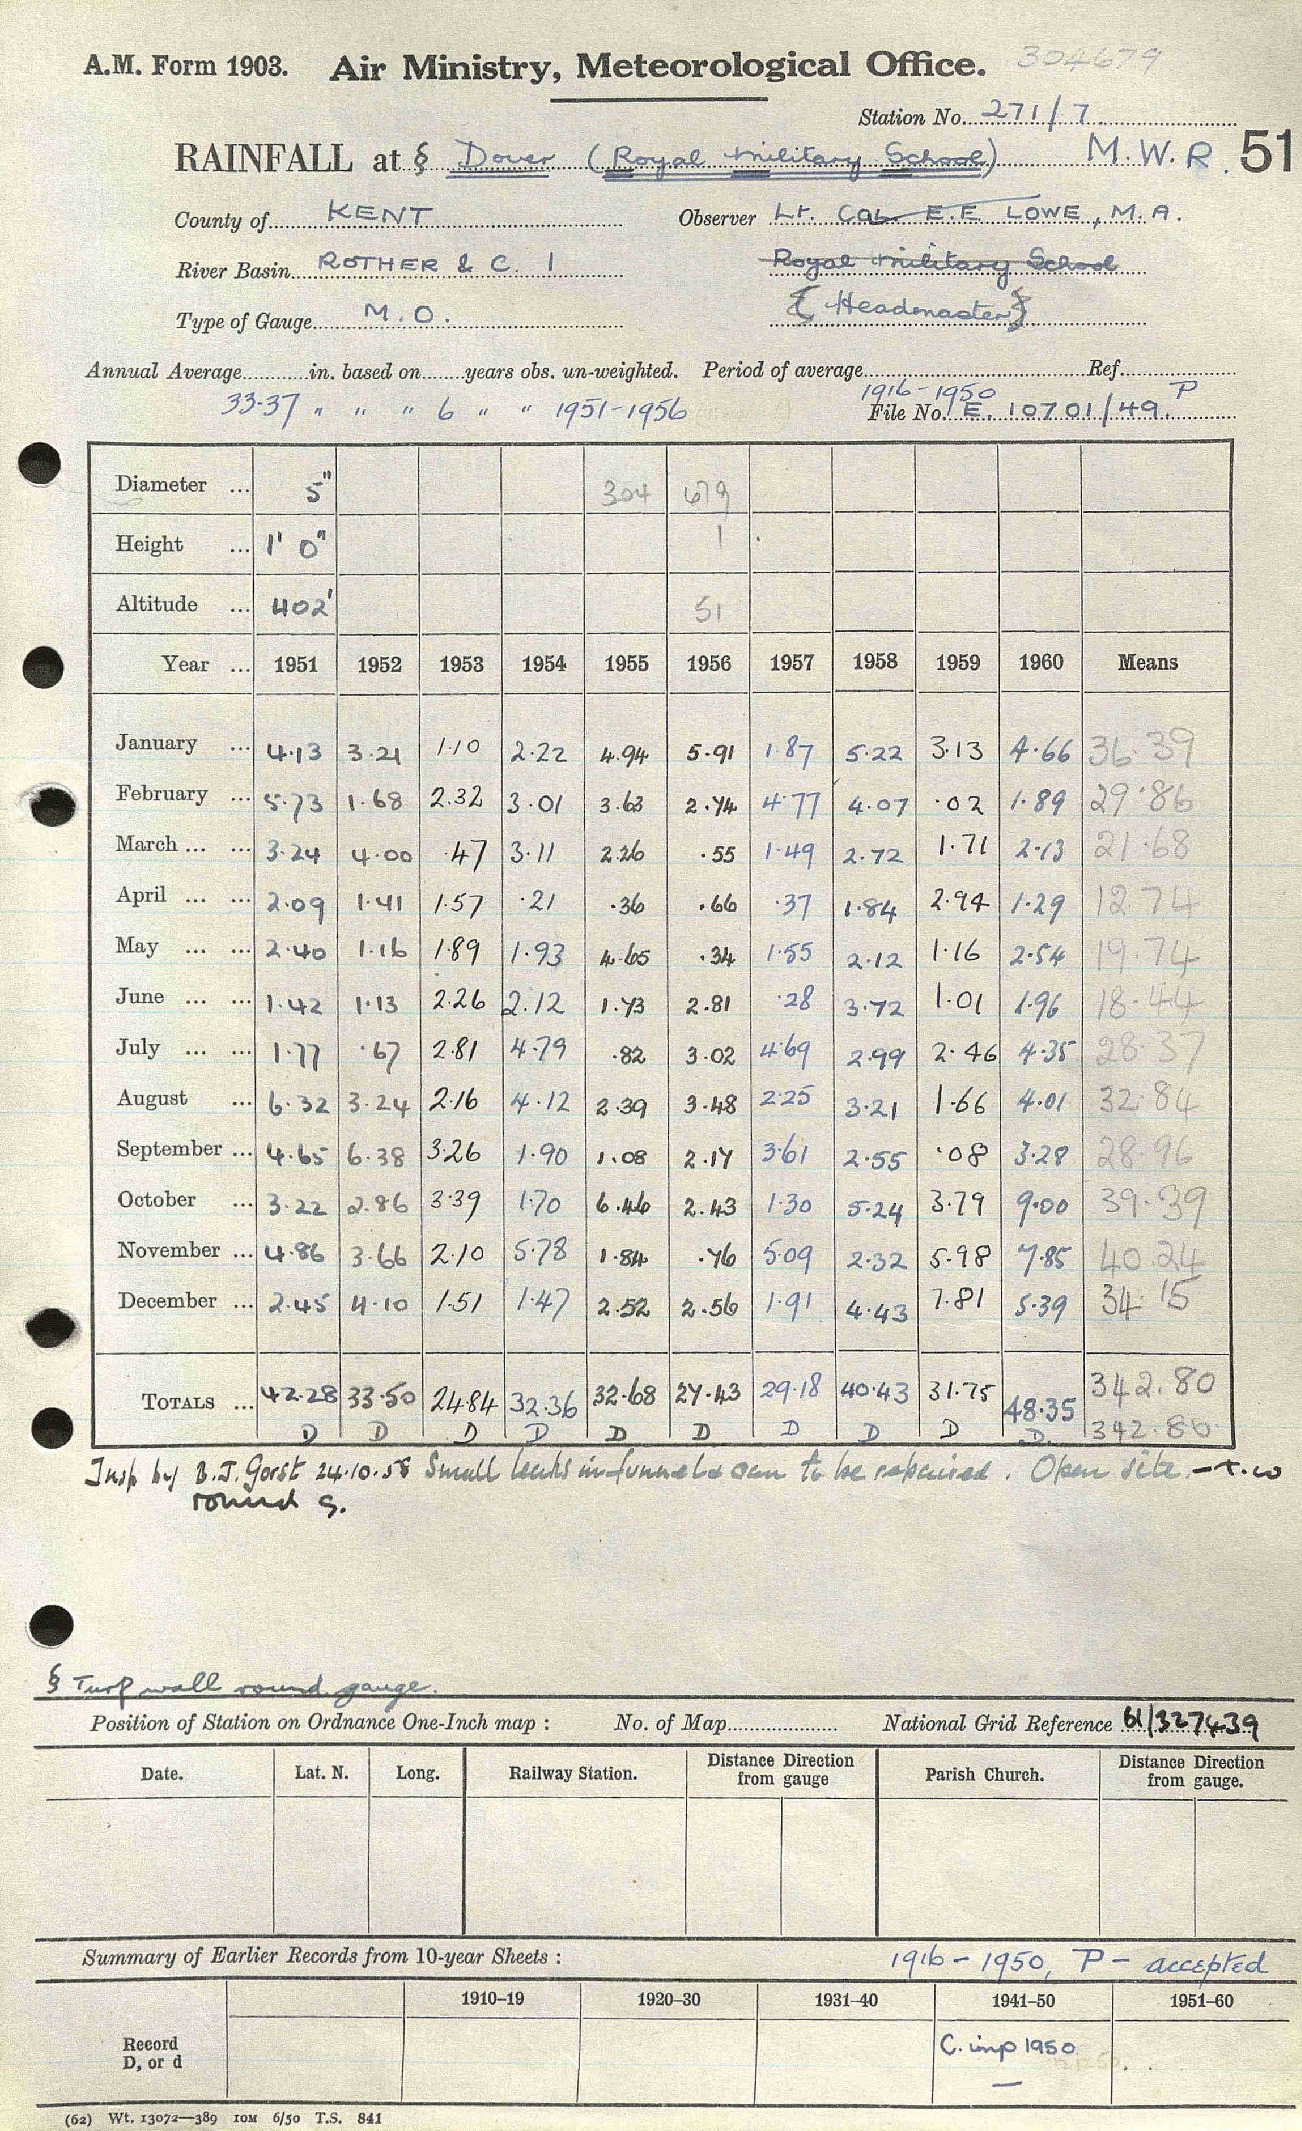 A.M. Form 1903. Air Ministry, Meteorological Office. 304679
Station No. 271/7
RAINFALL at § Dover (Royal Military School) M.W.R. 51
County of KENT Observer Lt. Col. E.E. LOWE, M.A.
River Basin ROTHER & C. 1 Royal Military School
Type of Gauge M.O. { Headmaster }
Annual Average in. based on years obs. un-weighted. Period of average Ref.
33·37 " " " 6 " " 1951–1956 1916–1950 P
File No. E. 10701/49
Diameter ... 5" 304 679
Height ... 1' 0" 1
Altitude ... 402' 51
Year ... 1951 1952 1953 1954 1955 1956 1957 1958 1959 1960 Means
January ... 4·13 3·21 1·10 2·22 4·94 5·91 1·87 5·22 3·13 4·66 36·39
February ... 5·73 1·68 2·32 3·01 3·63 2·74 4·77 4·07 ·02 1·89 29·86
March ... ... 3·24 4·00 ·47 3·11 2·26 ·55 1·49 2·72 1·71 2·13 21·68
April ... ... 2·09 1·41 1·57 ·21 ·36 ·66 ·37 1·84 2·94 1·29 12·74
May ... ... 2·40 1·16 1·89 1·93 4·65 ·34 1·55 2·12 1·16 2·54 19·74
June ... ... 1·42 1·13 2·26 2·12 1·73 2·81 ·28 3·72 1·01 1·96 18·44
July ... ... 1·77 ·67 2·81 4·79 ·82 3·02 4·69 2·99 2·46 4·35 28·37
August ... 6·32 3·24 2·16 4·12 2·39 3·48 2·25 3·21 1·66 4·01 32·84
September ... 4·65 6·38 3·26 1·90 1·08 2·17 3·61 2·55 ·08 3·28 28·96
October ... 3·22 2·86 3·39 1·70 6·46 2·43 1·30 5·24 3·79 9·00 39·39
November ... 4·86 3·66 2·10 5·78 1·84 ·76 5·09 2·32 5·98 7·85 40·24
December ... 2·45 4·10 1·51 1·47 2·52 2·56 1·91 4·43 7·81 5·39 34·15
TOTALS ... 42·28 33·50 24·84 32·36 32·68 27·43 29·18 40·43 31·75 48·35 342·80
D D D D D D D D D D 342·80
Insp by B.J. Gorst 24·10·58 Small leaks in funnel & can to be repaired. Open site – t.w
round g.
§ Turf wall round gauge.
Position of Station on Ordnance One-Inch map : No. of Map National Grid Reference 61/327439
Date. Lat. N. Long. Railway Station. Distance Direction from gauge Parish Church. Distance Direction from gauge.
Summary of Earlier Records from 10-year Sheets : 1916–1950, P – accepted
1910–19 1920–30 1931–40 1941–50 1951–60
Record
D, or d
C. inp 1950
–
(62) Wt. 13072—389 10M 6/50 T.S. 841